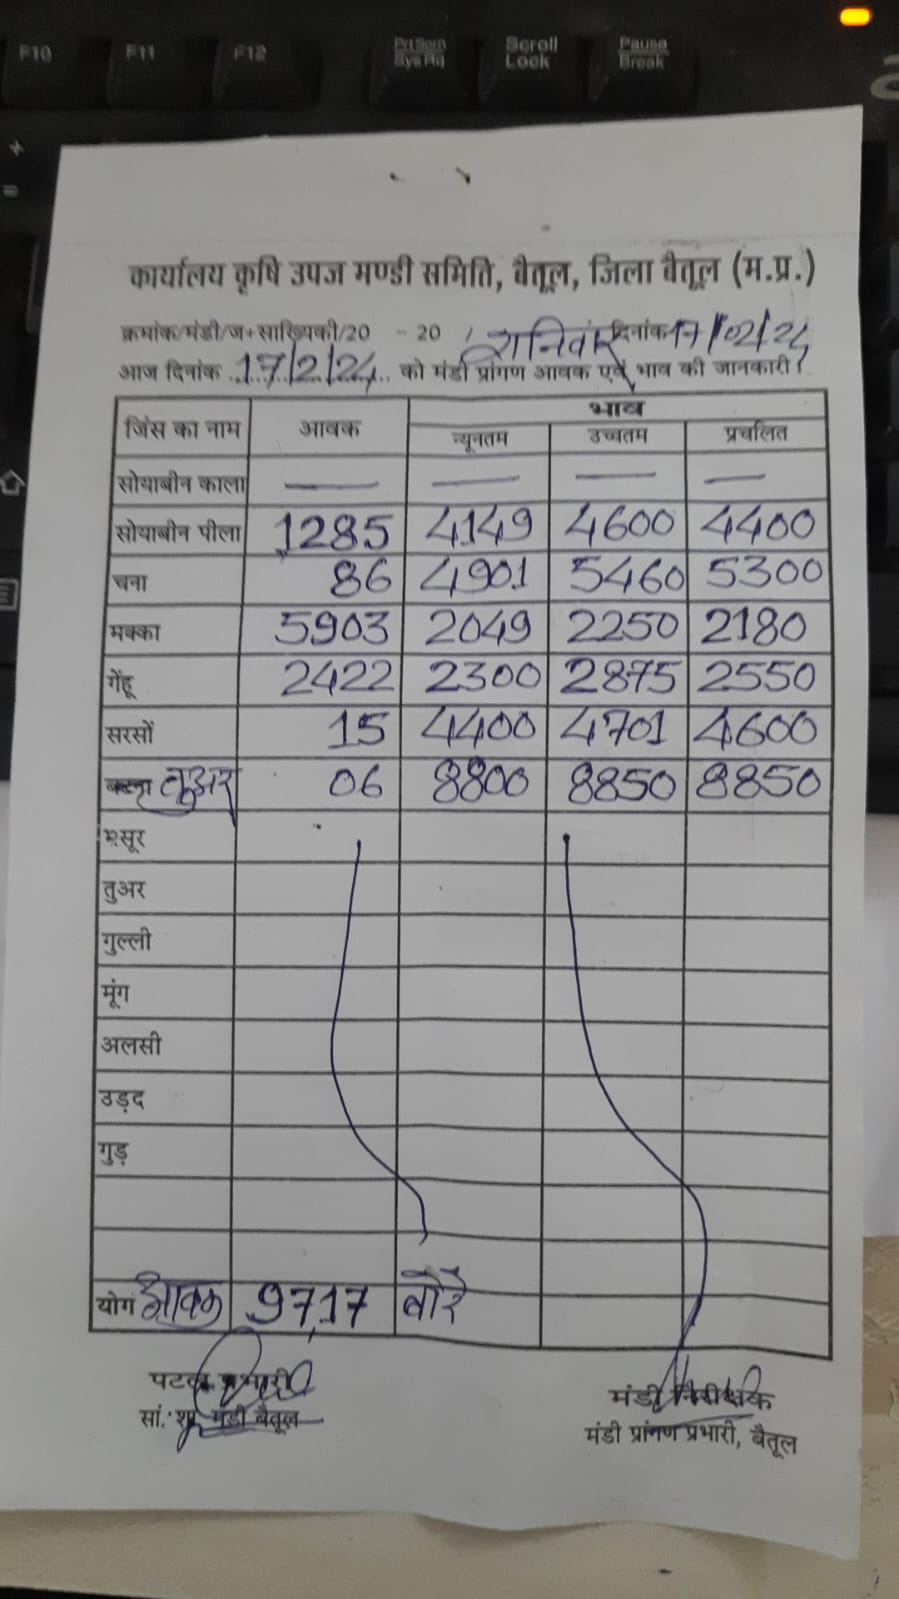 F10 F11 F12 Prt Scrn Scroll Pause
Sys Rq Lock Break
कार्यालय कृषि उपज मण्डी समिति, बैतूल, जिला बैतूल (म.प्र.)
क्रमांक/मंडी/ज+साख्यिकी/20 - 20 / शनिवार दिनांक 17/02/24
आज दिनांक 17/2/24 को मंडी प्रांगण आवक एवं भाव की जानकारी।
जिंस का नाम आवक भाव
न्यूनतम उच्चतम प्रचलित
सोयाबीन काला — — — —
सोयाबीन पीला 1285 4149 4600 4400
चना 86 4901 5460 5300
मक्का 5903 2049 2250 2180
गेंहू 2422 2300 2875 2550
सरसों 15 4400 4701 4600
तुअर 06 8800 8850 8850
मसूर
तुअर
गुल्ली
मूंग
अलसी
उड़द
गुड़
योग आवक 9717 बोरे
मंडी निरीक्षक
सां. शा. मंडी बैतूल
मंडी प्रांगण प्रभारी, बैतूल